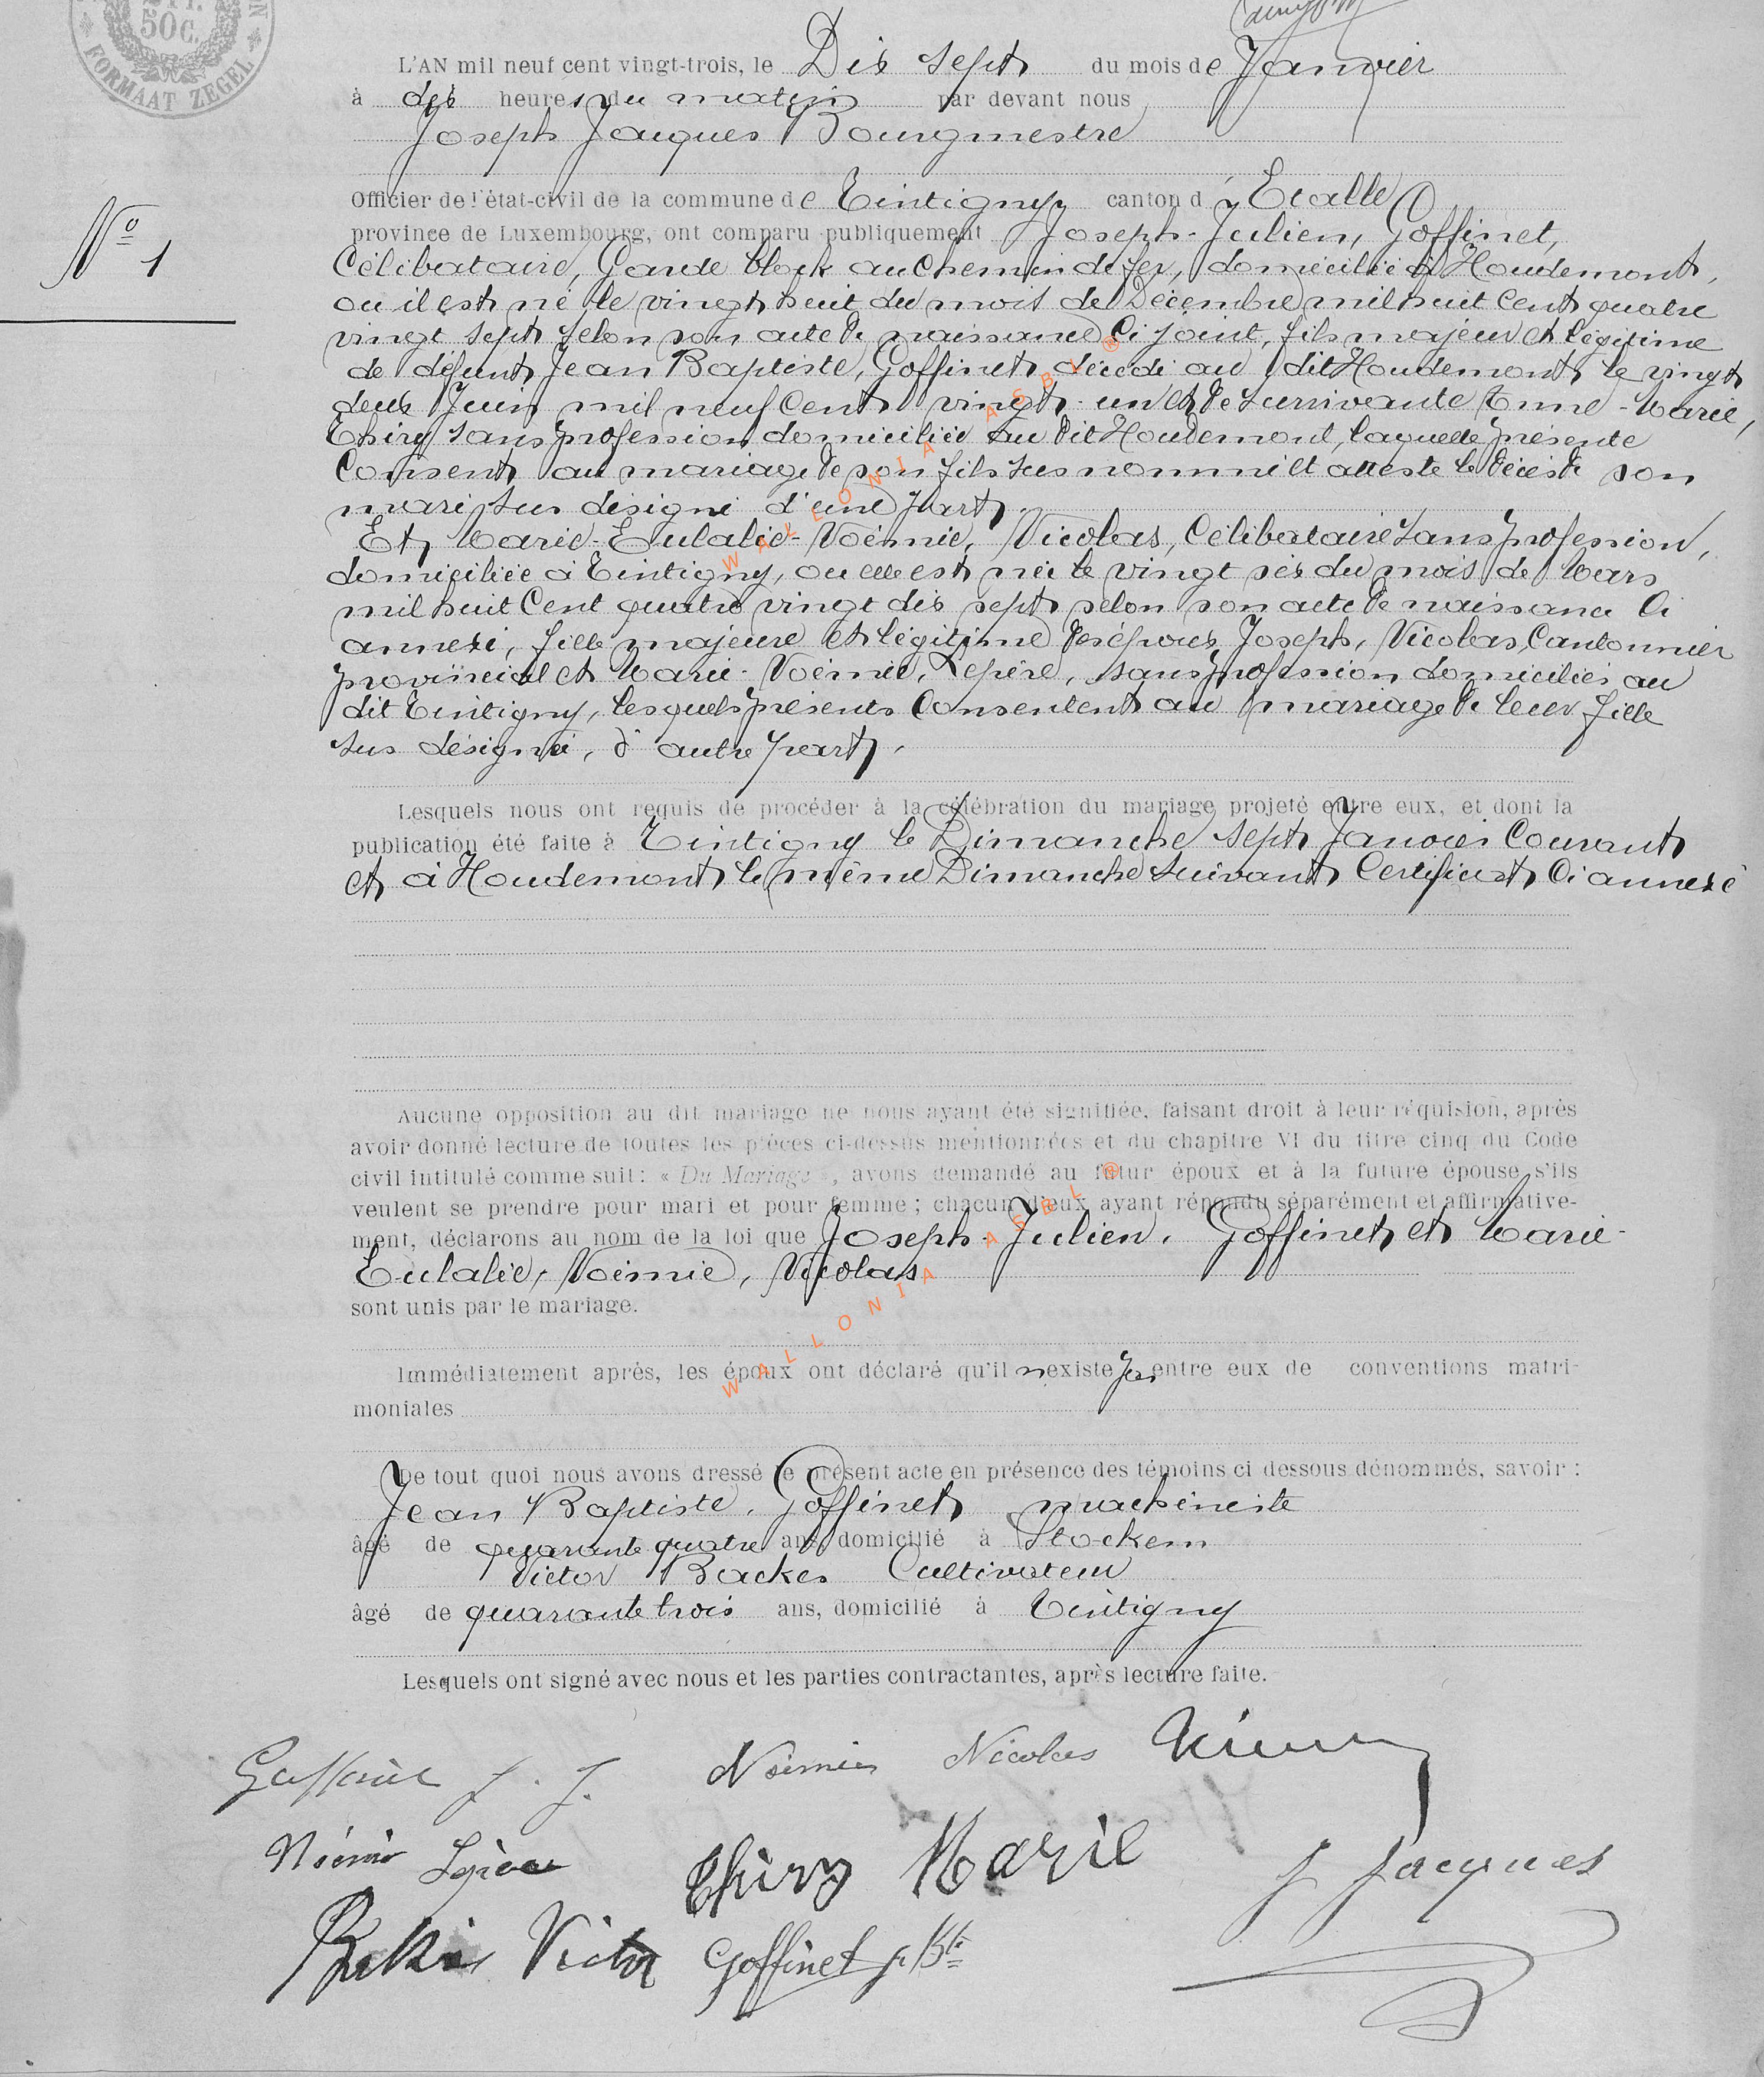 50C.
FORMAAT ZEGEL
L'AN mil neuf cent vingt-trois, le Dix sept du mois de Janvier
à dix heures du matin par devant nous
Joseph Jacques Bourgmestre
Officier de l'état-civil de la commune de Tintigny canton d'Etalle
N° 1
province de Luxembourg, ont comparu publiquement Joseph-Julien, Goffinet,
Célibataire, Garde block au Chemin de fer, domicilié à Houdemont,
ou il est né le vingt huit du mois de Décembre mil huit Cent quatre
vingt sept selon son acte de naissance Ci joint, fils majeur et légitime
de défunt Jean Baptiste, Goffinet décédé au dit Houdemont le vingt
deux Juin mil neuf Cent vingt-un et de survivante Anne-Marie,
Thiry sans profession domiciliée au dit Houdemont, laquelle présente
Consent au mariage de son fils sus nommé et atteste le décès de son
mari sus désigné d'une part.
Et Marie-Eulalie-Noémie, Nicolas, Célibataire sans profession,
domiciliée à Tintigny, ou elle est née le vingt six du mois de Mars
mil huit Cent quatre vingt dix sept selon son acte de naissance Ci
annexé, fille majeure et légitime des époux Joseph, Nicolas, Cantonnier
provincial et Marie-Noémie, Lepère, sans profession domiciliés au
dit Tintigny, lesquels présents Consentent au mariage de leur fille
sus désignée, d'autre part.
Lesquels nous ont requis de procéder à la célébration du mariage projeté entre eux, et dont la
publication été faite à Tintigny le Dimanche sept Janvier Courant
et à Houdemont le même Dimanche suivant Certificat Ci annexé
Aucune opposition au dit mariage ne nous ayant été signifiée, faisant droit à leur réquision, après
avoir donné lecture de toutes les pièces ci-dessus mentionnées et du chapitre VI du titre cinq du Code
civil intitulé comme suit: « Du Mariage », avons demandé au futur époux et à la future épouse s'ils
veulent se prendre pour mari et pour femme; chacun d'eux ayant répondu séparément et affirmative-
ment, déclarons au nom de la loi que Joseph-Julien, Goffinet et Marie-
Eulalie, Noémie, Nicolas
sont unis par le mariage.
Immédiatement après, les époux ont déclaré qu'il n'existe pas entre eux de conventions matri-
moniales
De tout quoi nous avons dressé le présent acte en présence des témoins ci dessous dénommés, savoir :
Jean Baptiste, Goffinet machiniste
âgé de quarante quatre ans domicilié à Stockem
Victor Backes Cultivateur
âgé de quarante trois ans, domicilié à Tintigny
Lesquels ont signé avec nous et les parties contractantes, après lecture faite.
Goffinet J. J. Noémie Nicolas
Noémie Lepère Thiry Marie J Jacques
Victor Goffinet J Bte
WALLONIA ASBL ®
WALLONIA ASBL ®